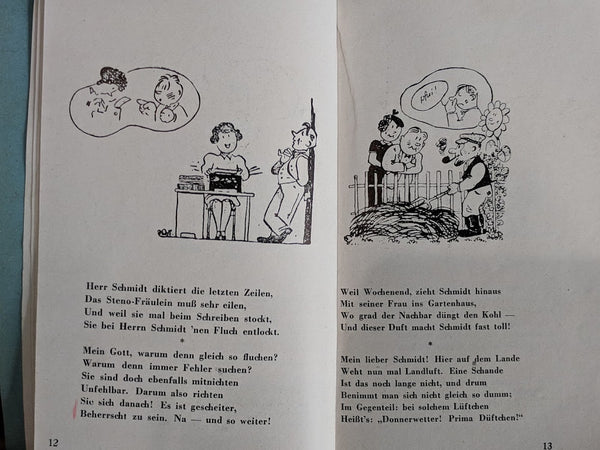 Herr Schmidt diktiert die letzten Zeilen,
Das Steno-Fräulein muß sehr eilen,
Und weil sie mal beim Schreiben stockt,
Sie bei Herrn Schmidt 'nen Fluch entlockt.
*
Mein Gott, warum denn gleich so fluchen?
Warum denn immer Fehler suchen?
Sie sind doch ebenfalls mitnichten
Unfehlbar. Darum also richten
Sie sich danach! Es ist gescheiter,
Beherrscht zu sein. Na — und so weiter!
12
Pfui!
Weil Wochenend, zieht Schmidt hinaus
Mit seiner Frau ins Gartenhaus,
Wo grad der Nachbar düngt den Kohl —
Und dieser Duft macht Schmidt fast toll!
*
Mein lieber Schmidt! Hier auf dem Lande
Weht nun mal Landluft. Eine Schande
Ist das noch lange nicht, und drum
Benimmt man sich nicht gleich so dumm;
Im Gegenteil: bei solchem Lüftchen
Heißt's: „Donnerwetter! Prima Düftchen!"
13